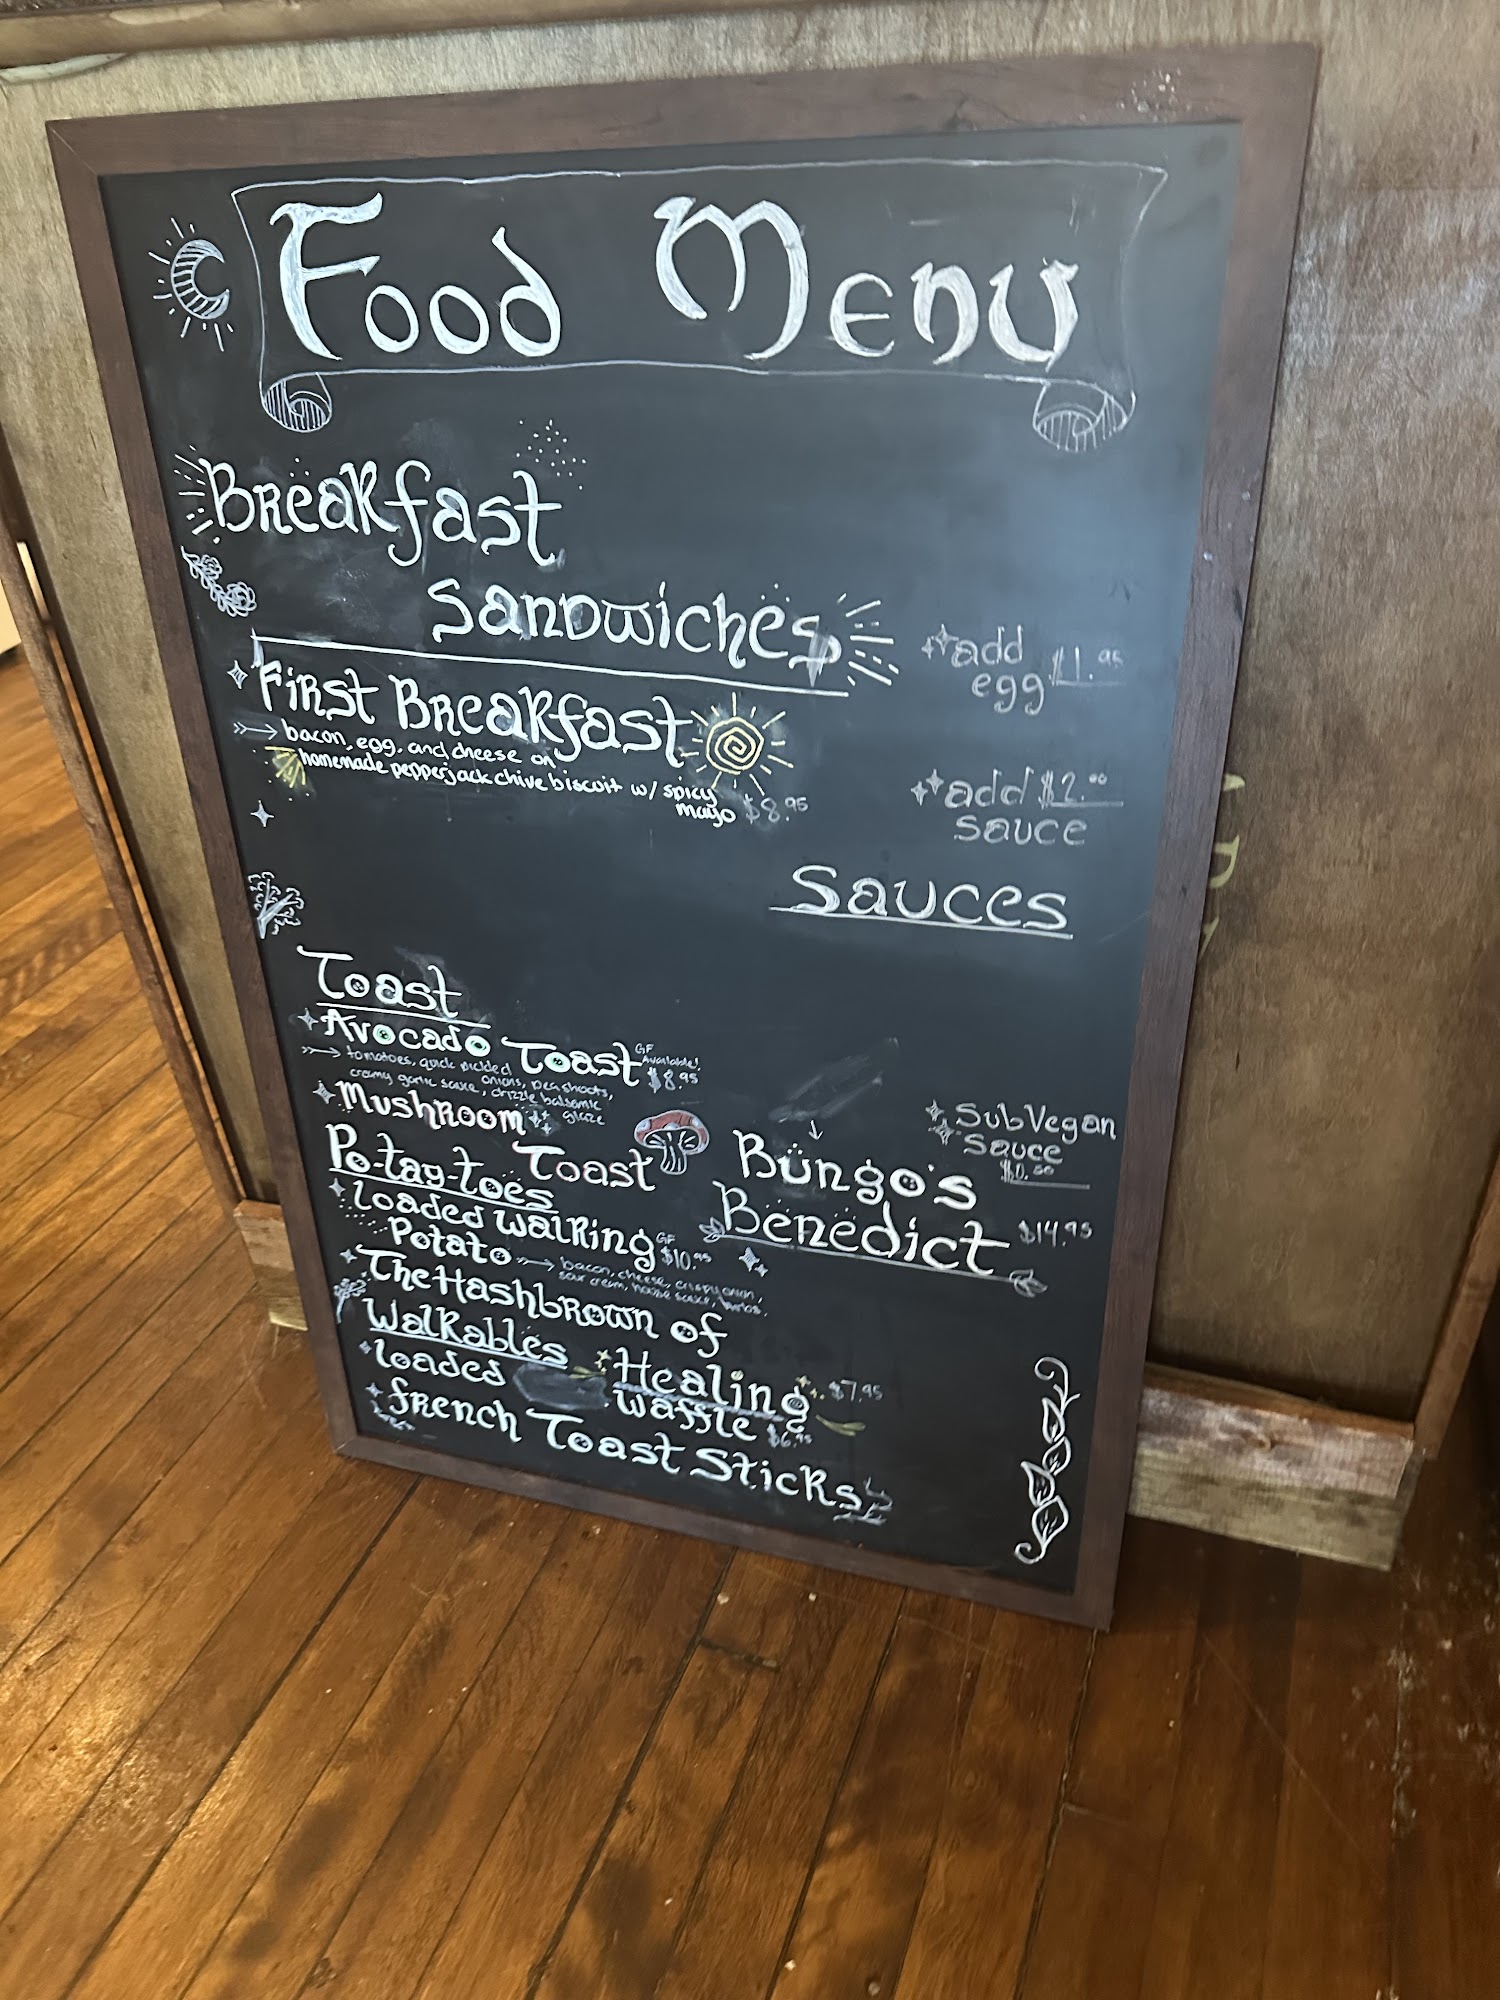 Food Menu
Breakfast
Sandwiches
First Breakfast
bacon, egg, and cheese on
homemade pepperjack chive biscuit w/ spicy
mayo $8.95
add
egg $1.95
add $2.00
sauce
Sauces
Toast
Avocado Toast GF Available! $8.95
tomatoes, quick pickled
onions, pea shoots,
creamy garlic sauce, drizzle balsamic
glaze
Mushroom
Toast
Po-tay-toes
Loaded Walking
Potato GF $10.95
bacon, cheese, crispy onion,
sour cream, house sauce,
The Hashbrown of
Healing $7.95
Walkables
Loaded
Waffle $6.95
French Toast Sticks
Sub Vegan
Sauce
$0.50
Bungo's
Benedict $14.95